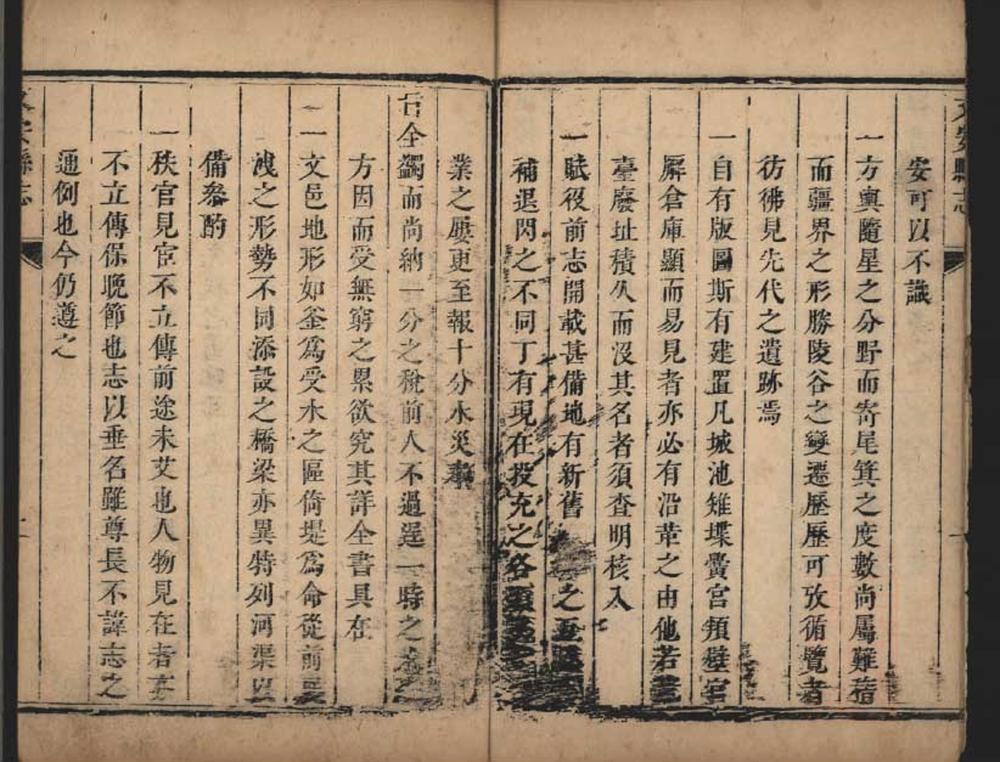 文安縣志
安可以不識
一方輿隨星之分野而寄尾箕之度數尚屬難稽
而疆界之形勝陵谷之變遷歷歷可攷循覽者
彷彿見先代之遺跡焉
一自有版圖斯有建置凡城池雉堞黌宮頖壁官
廨倉庫顯而易見者亦必有沿革之由他若
臺廢址積久而沒其名者須查明核入
一賦役前志開載甚備地有新舊之
補退閃之不同丁有現在投充之各
業之屢更至報十分水災奉
旨全蠲而尚納一分之稅前人不過逞一時之
方因而受無窮之累欲究其詳全書具在
一文邑地形如釜為受水之區倚堤為命從前
洩之形勢不同添設之橋梁亦異特列河渠以
備叅酌
一秩官見宦不立傳前途未艾也人物見在者
不立傳保晚節也志以垂名雖尊長不諱志之
通例也今仍遵之
文安縣志